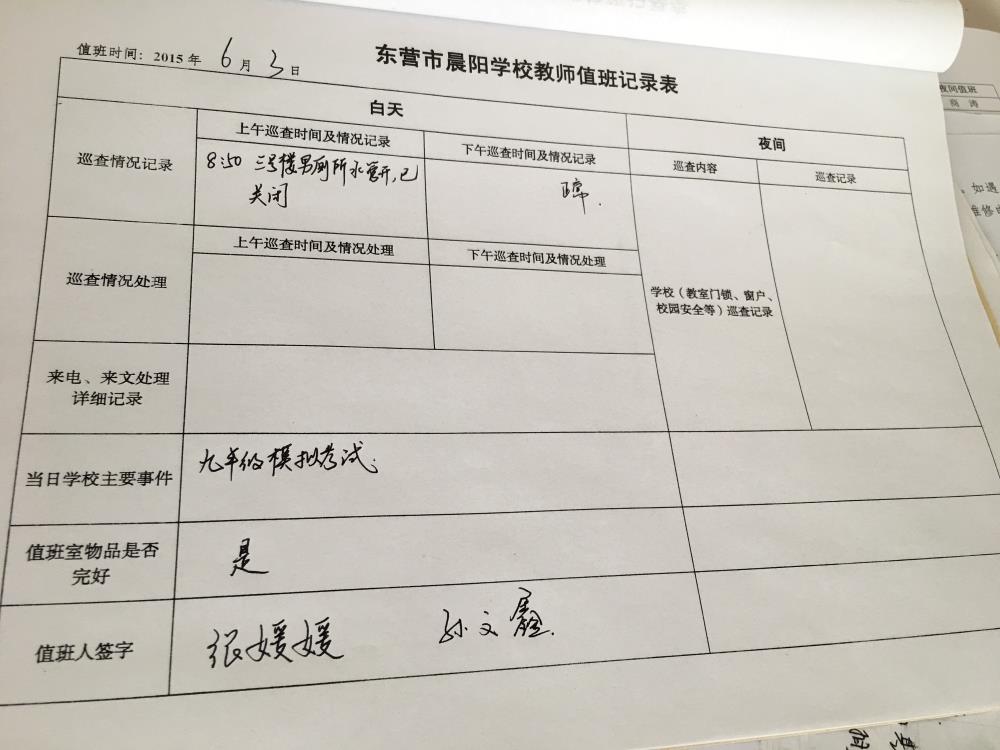 东营市晨阳学校教师值班记录表
值班时间：2015年 6月 3日
白天
夜间
巡查情况记录
上午巡查时间及情况记录
下午巡查时间及情况记录
巡查内容
巡查记录
8:50 三号楼男厕所水管开,已
关闭
正常.
上午巡查时间及情况处理
下午巡查时间及情况处理
巡查情况处理
学校（教室门锁、窗户、
校园安全等）巡查记录
来电、来文处理
详细记录
当日学校主要事件
九年级模拟考试.
值班室物品是否
完好
是
值班人签字
张媛媛
孙文
夜间值班
商 涛
。如遇
维修